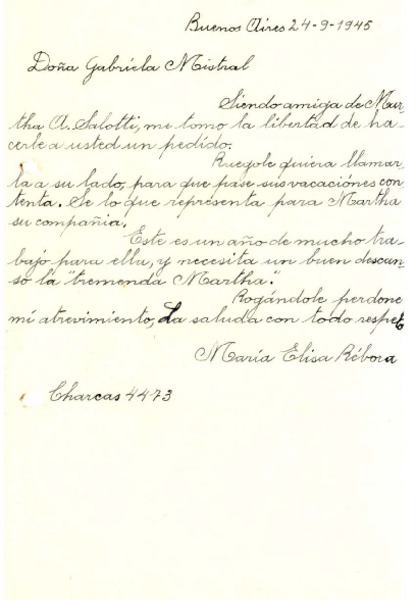 Buenos Aires 24-9-1945
Doña Gabriela Mistral
Siendo amiga de Mar-
tha A. Salotti, me tomo la libertad de ha-
cerle a usted un pedido.
Ruegole quiera llamar-
la a su lado, para que pase sus vacaciónes con
tenta. Se lo que représenta para Martha
su compañia.
Este es un año de mucho tra-
bajo para ella, y necesita un buen descan-
so la "tremenda Martha".
Rogándole perdone
mi atrevimiento, La saluda con todo respeto
María Elisa Rébora
Charcas 4473